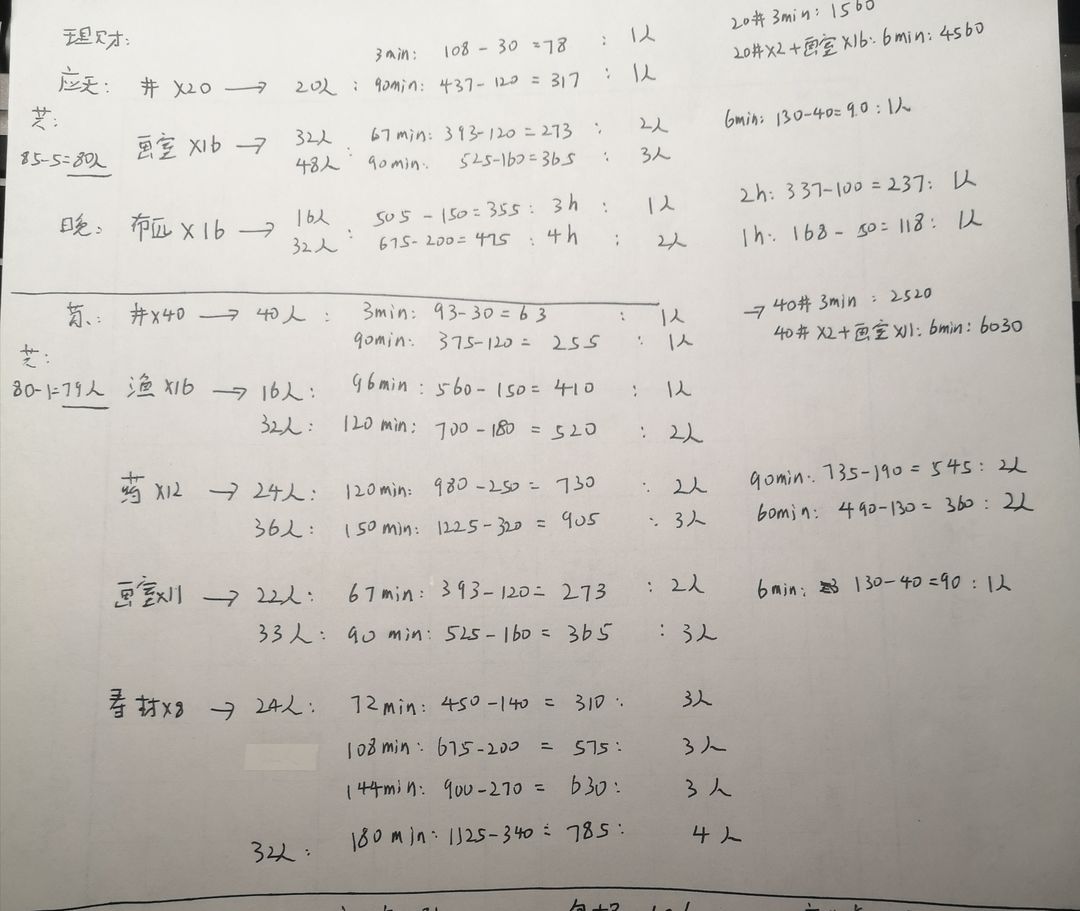 理财:
3min: 108-30=78 : 1人
20井 3min: 1560
应天: 井 X20 → 20人 : 90min: 437-120=317 : 1人
20井X2+画室X16: 6min: 4560
芝:
85-5=80人
画室 X16 → 32人 : 67min: 393-120=273 : 2人
6min: 130-40=90 : 1人
48人 90min: 525-160=365 : 3人
布匹 X16 → 16人 : 505-150=355 : 3h : 1人
2h: 337-100=237: 1人
32人 675-200=475 : 4h : 2人
1h: 168-50=118: 1人
井X40 → 40人 : 3min: 93-30=63 : 1人
→ 40井 3min : 2520
90min: 375-120=255 : 1人
40井 X2+画室X11: 6min: 6030
芝:
80-1=79人
渔X16 → 16人: 96min: 560-150=410 : 1人
32人: 120min: 700-180=520 : 2人
药X12 → 24人: 120min: 980-250=730 : 2人
90min: 735-190=545: 2人
36人: 150min: 1225-320=905 : 3人
60min: 490-130=360: 2人
画室X11 → 22人: 67min: 393-120=273 : 2人
6min: 130-40=90 : 1人
33人: 90min: 525-160=365 : 3人
X8 → 24人: 72min: 450-140=310: 3人
108min: 675-200=575: 3人
144min: 900-270=630: 3人
32人: 180min: 1125-340=785: 4人